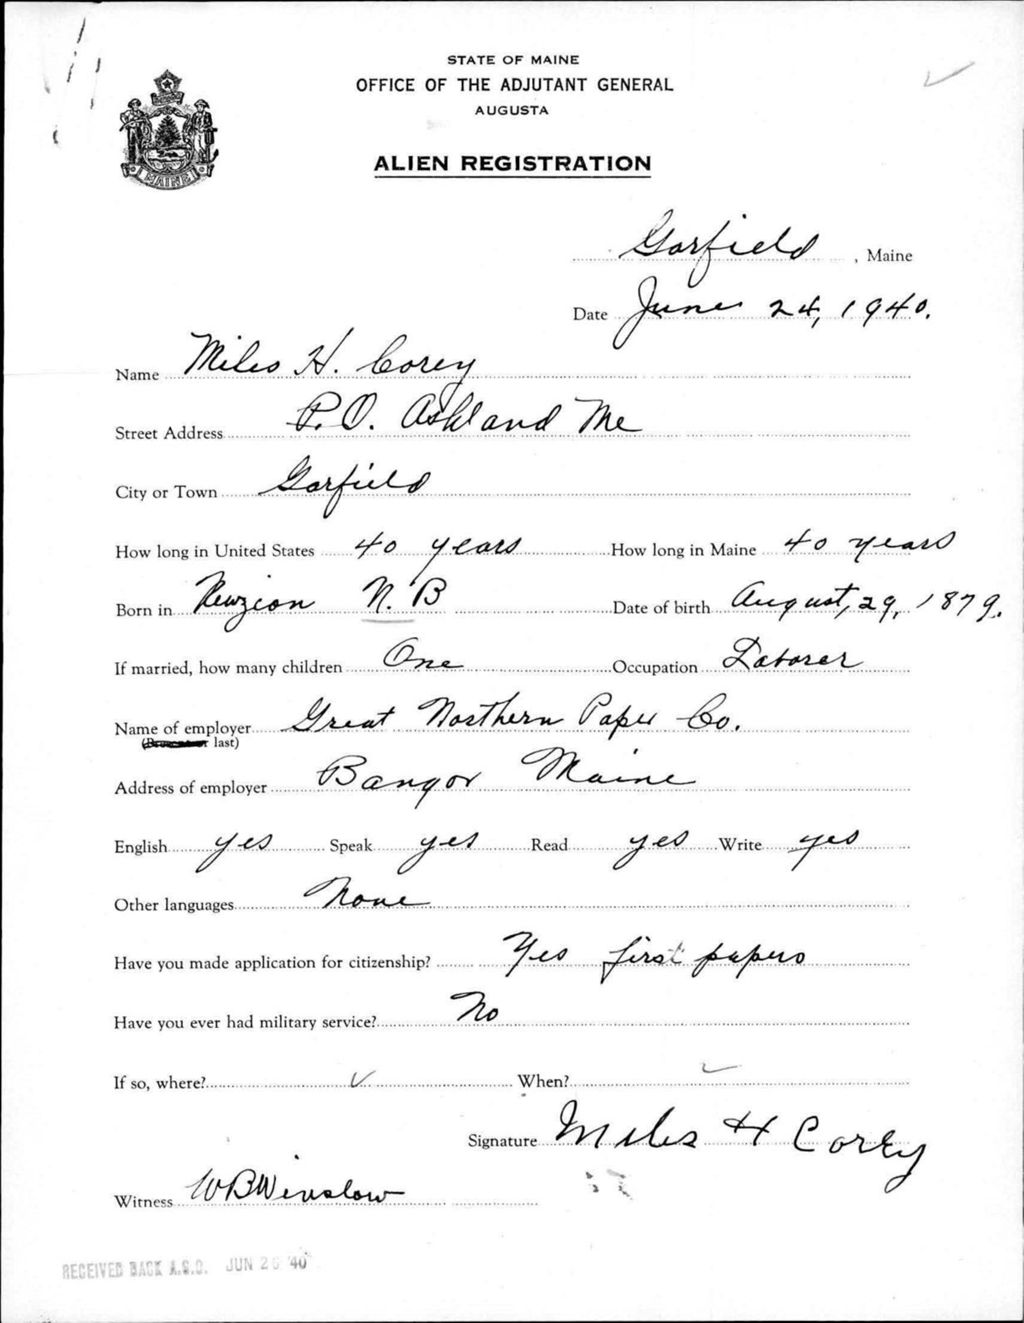 STATE OF MAINE
OFFICE OF THE ADJUTANT GENERAL
AUGUSTA
ALIEN REGISTRATION
MAINE
Garfield, Maine
Date June 24, 1940.
Name Miles H. Corey
Street Address P.O. Ashland Me
City or Town Garfield
How long in United States 40 years How long in Maine 40 years
Born in Newzion N.B Date of birth August, 29, 1879.
If married, how many children One Occupation Laborer
Name of employer Great Northern Paper Co.
last)
Address of employer Bangor Maine
English yes Speak yes Read yes Write yes
Other languages None
Have you made application for citizenship? Yes first papers
Have you ever had military service? No
If so, where? When?
Signature Miles H Corey
Witness W B Winslow
RECEIVED BACK A.G.O. JUN 26 '40